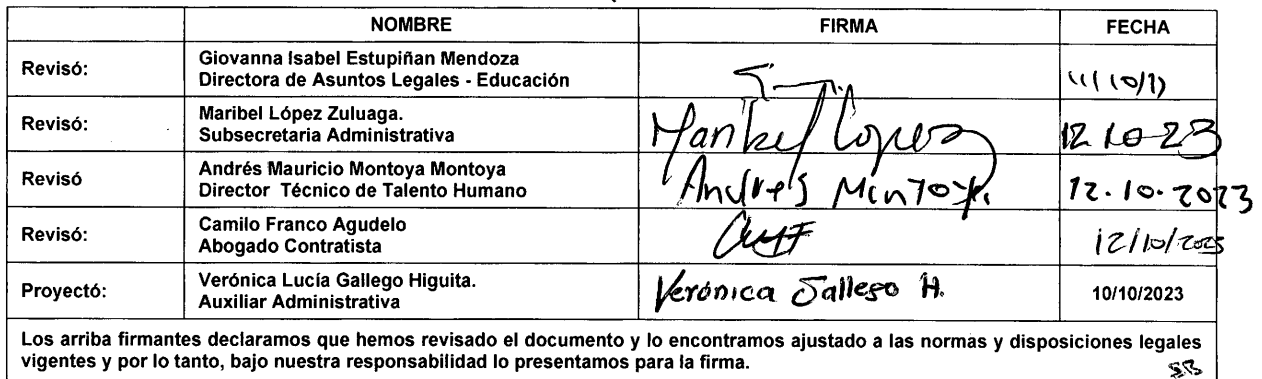 NOMBRE FIRMA FECHA
Revisó: Giovanna Isabel Estupiñan Mendoza
Directora de Asuntos Legales - Educación
Revisó: Maribel López Zuluaga.
Subsecretaria Administrativa
Maribel López 12 10 23
Revisó Andrés Mauricio Montoya Montoya
Director Técnico de Talento Humano
Andres Montoya. 12.10.2023
Revisó: Camilo Franco Agudelo
Abogado Contratista
12/10/2023
Proyectó: Verónica Lucía Gallego Higuita.
Auxiliar Administrativa
Verónica Gallego H. 10/10/2023
Los arriba firmantes declaramos que hemos revisado el documento y lo encontramos ajustado a las normas y disposiciones legales
vigentes y por lo tanto, bajo nuestra responsabilidad lo presentamos para la firma.